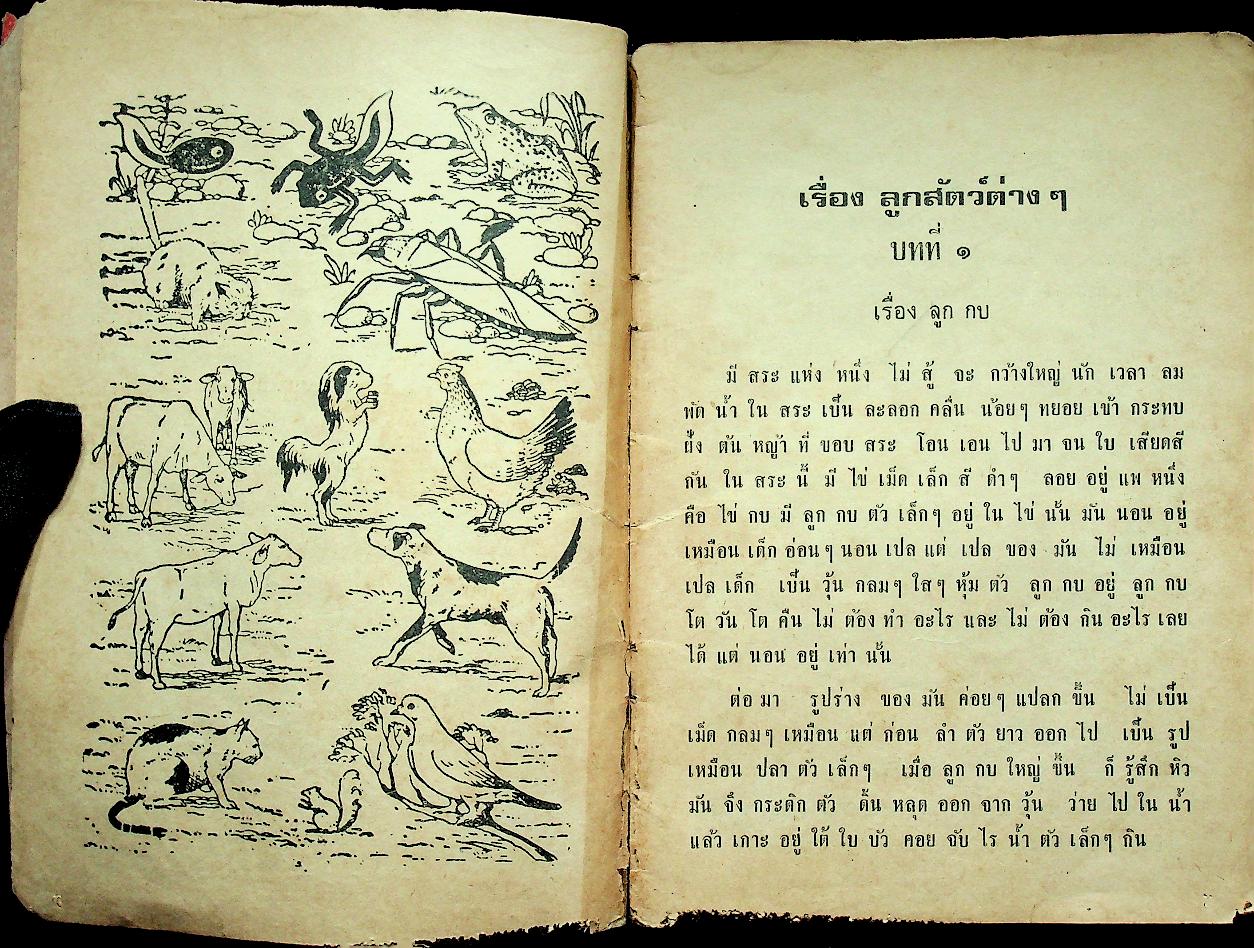 เรื่อง ลูกสัตว์ต่าง ๆ
บทที่ ๑
เรื่อง ลูก กบ
มี สระ แห่ง หนึ่ง ไม่ สู้ จะ กว้างใหญ่ นัก เวลา ลม
พัด น้ำ ใน สระ เป็น ละลอก คลื่น น้อยๆ ทยอย เข้า กระทบ
ฝั่ง ต้น หญ้า ที่ ขอบ สระ โอน เอน ไป มา จน ใบ เสียดสี
กัน ใน สระ นี้ มี ไข่ เม็ด เล็ก สี ดำๆ ลอย อยู่ แพ หนึ่ง
คือ ไข่ กบ มี ลูก กบ ตัว เล็กๆ อยู่ ใน ไข่ นั้น มัน นอน อยู่
เหมือน เด็ก อ่อนๆ นอน เปล แต่ เปล ของ มัน ไม่ เหมือน
เปล เด็ก เป็น วุ้น กลมๆ ใสๆ หุ้ม ตัว ลูก กบ อยู่ ลูก กบ
โต วัน โต คืน ไม่ ต้อง ทำ อะไร และ ไม่ ต้อง กิน อะไร เลย
ได้ แต่ นอน อยู่ เท่า นั้น
ต่อ มา รูปร่าง ของ มัน ค่อยๆ แปลก ขึ้น ไม่ เป็น
เม็ด กลมๆ เหมือน แต่ ก่อน ลำ ตัว ยาว ออก ไป เป็น รูป
เหมือน ปลา ตัว เล็กๆ เมื่อ ลูก กบ ใหญ่ ขึ้น ก็ รู้สึก หิว
มัน จึง กระดิก ตัว ดิ้น หลุด ออก จาก วุ้น ว่าย ไป ใน น้ำ
แล้ว เกาะ อยู่ ใต้ ใบ บัว คอย จับ ไร น้ำ ตัว เล็กๆ กิน